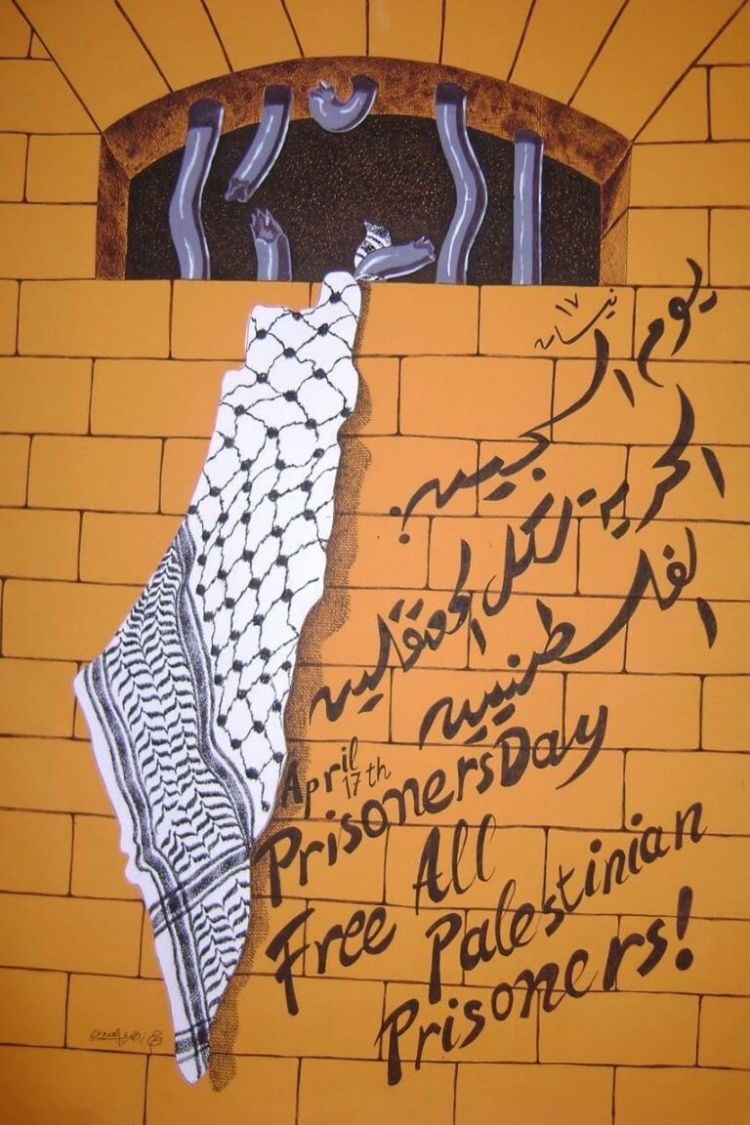 ١٧ نيسان
يوم السجين
الحرية لكل المعتقلين
الفلسطينيين
April
17th
Prisoners Day
Free All
Palestinian
Prisoners!